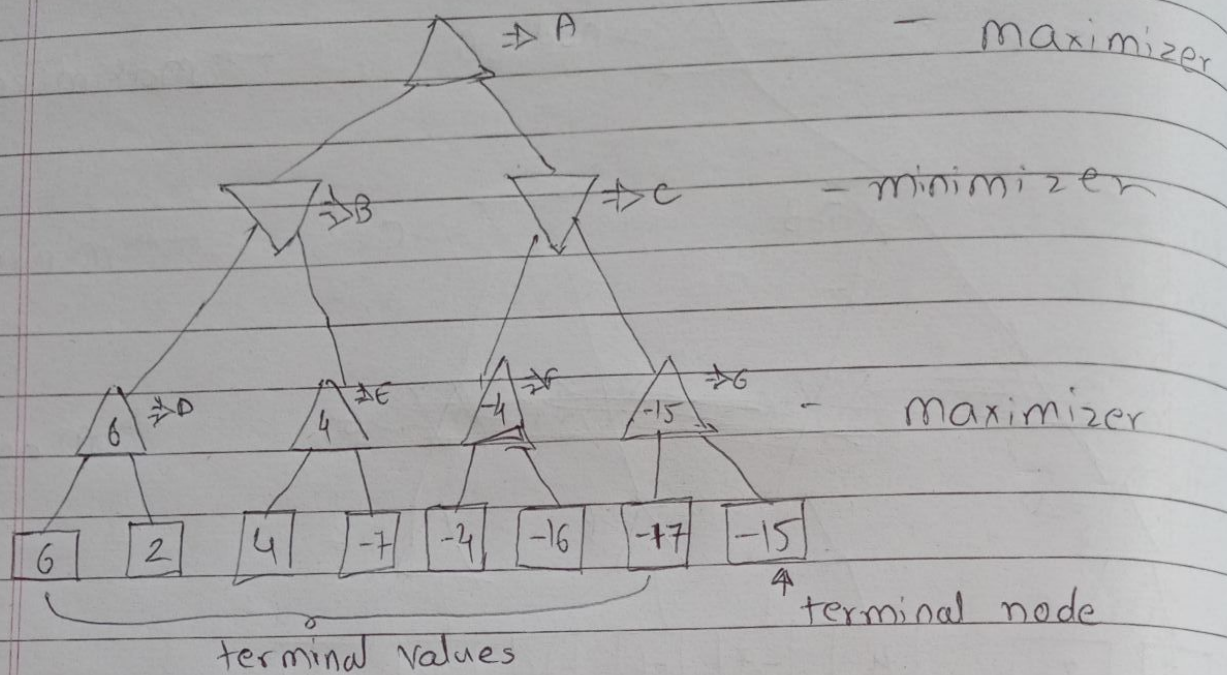 ⇒ A - maximizer
⇒ B ⇒ C - minimizer
6 ⇒ D 4 ⇒ E -4 ⇒ F -15 ⇒ G - maximizer
6 2 4 -7 -4 -16 -17 -15
terminal node
terminal values